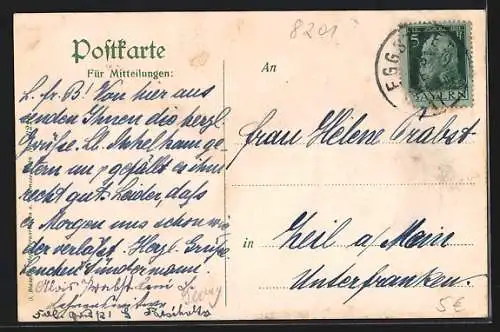 8201
Postkarte
Für Mitteilungen:
An
5
BAYERN
EGGS
L. fr. B! Von hier aus
senden Ihnen die herzl.
Grüße. Lb. Onkel kam ge-
stern u. gefällt es ihm
recht gut. Leider, daß
er Morgen uns schon wie-
der verläßt. Herzl. Grüße
Lenchen Sündermann.
Frau Helene Probst
in Zeil a/Main
Unterfranken.
5€